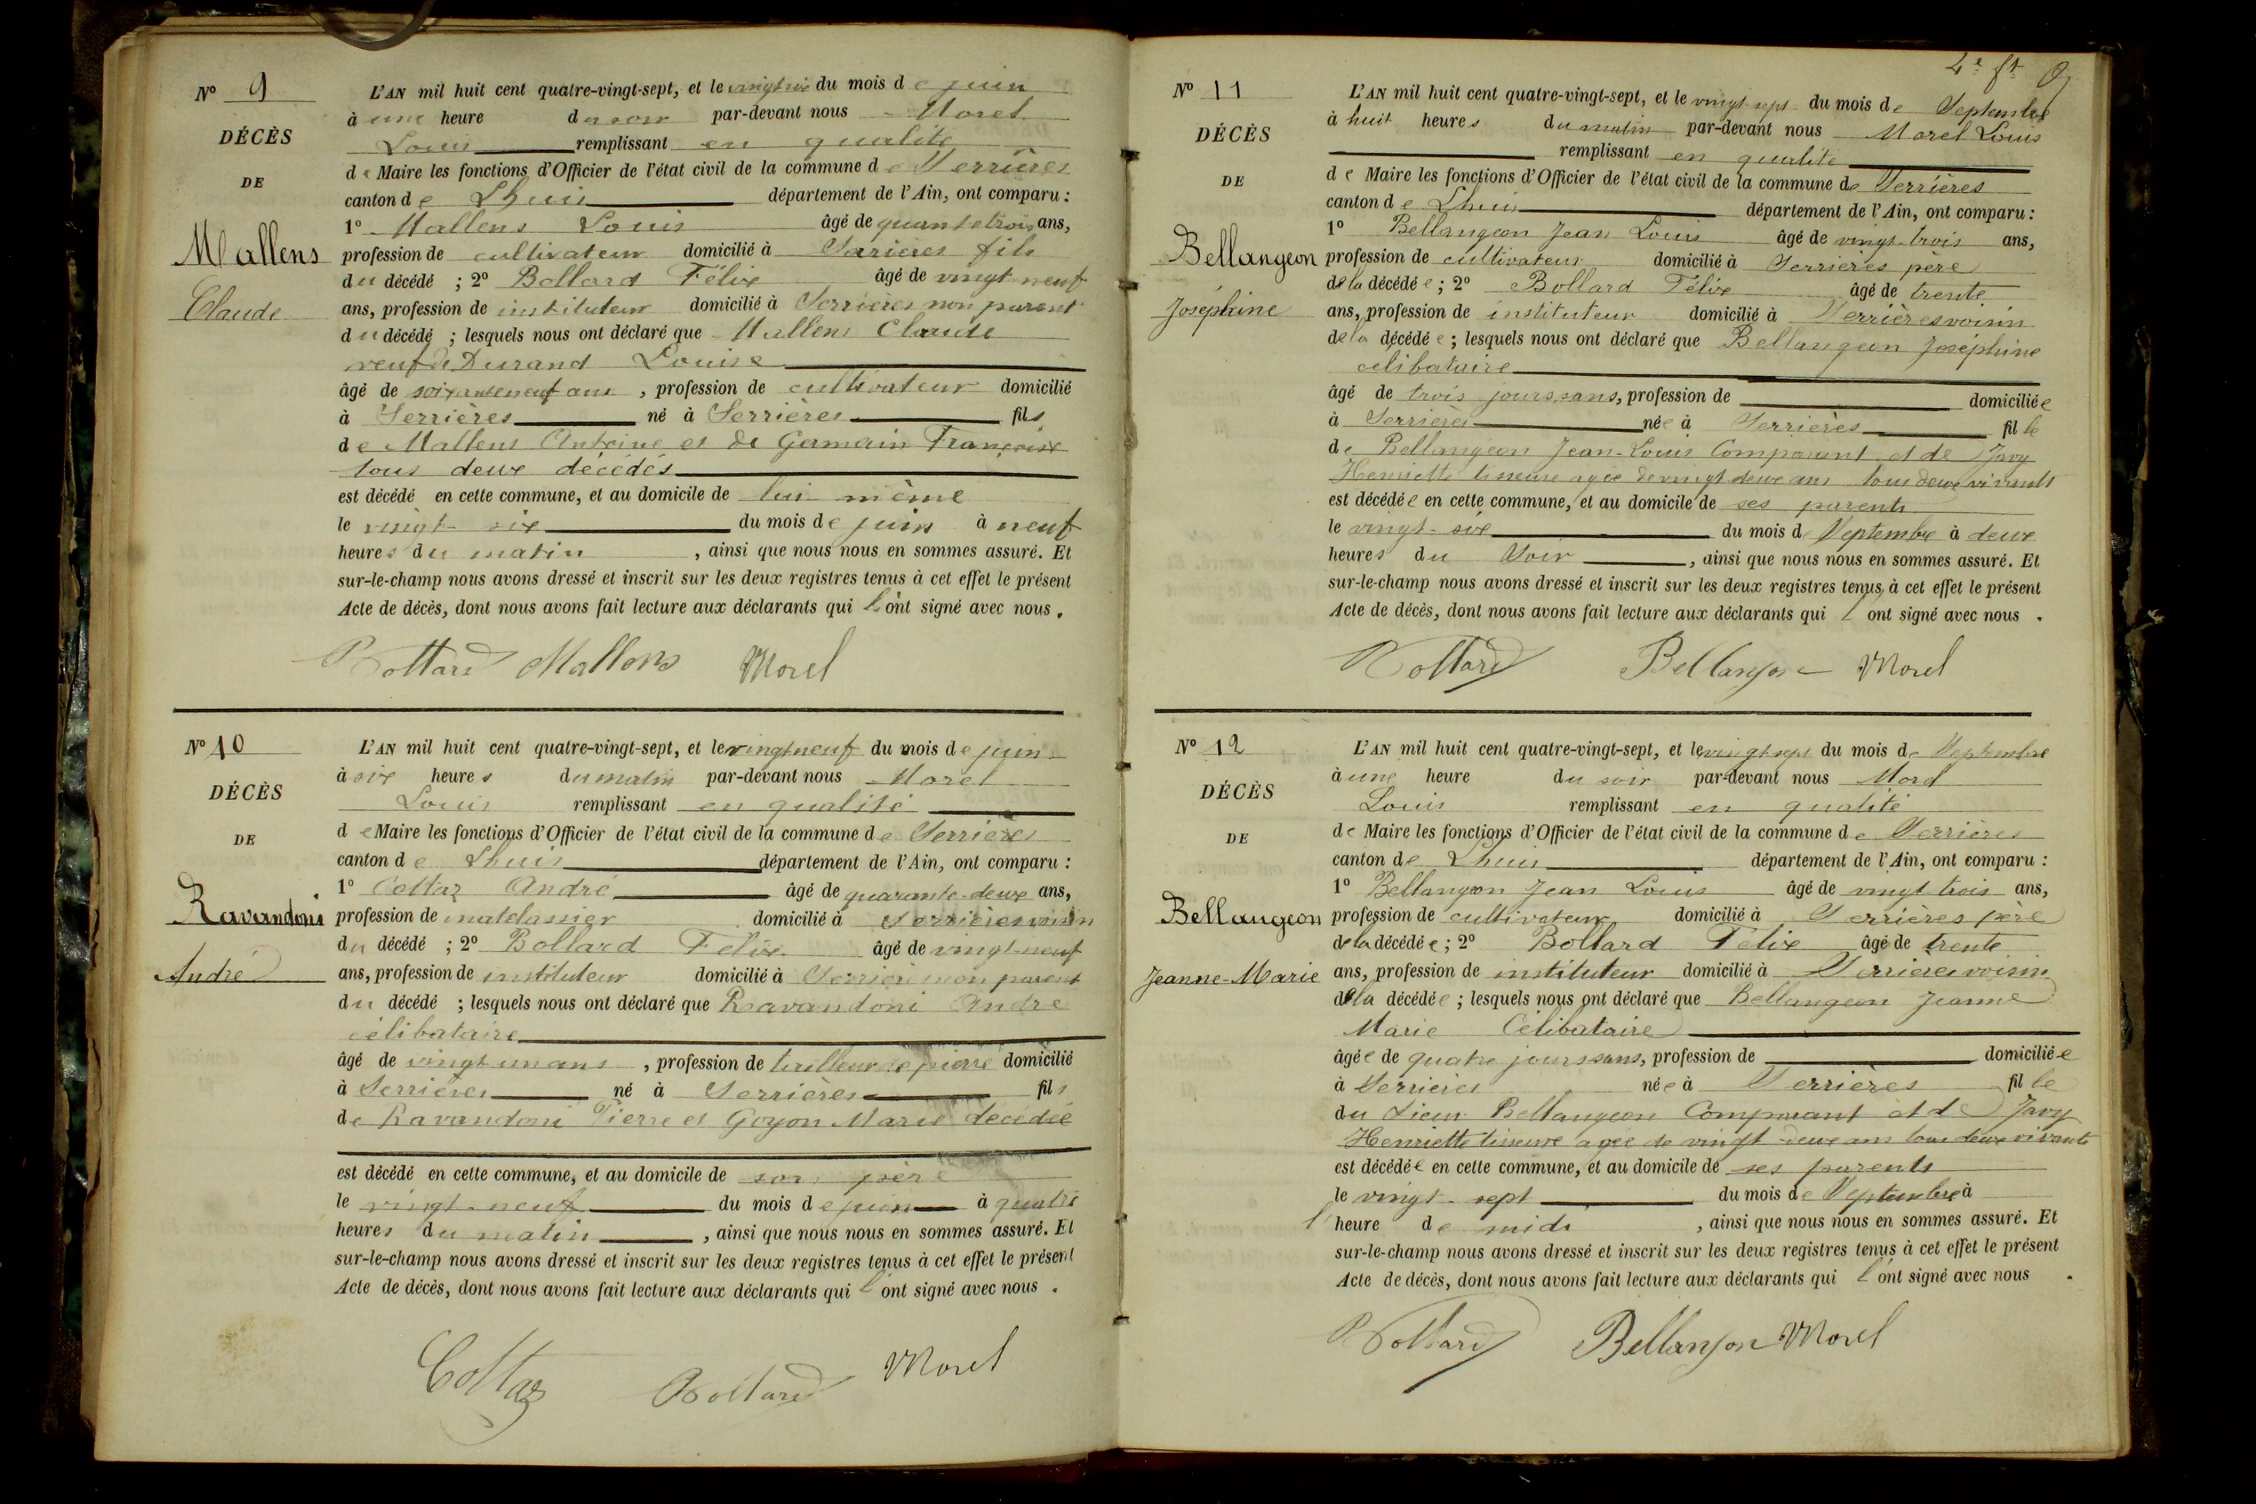 Nº 9
DÉCÈS
DE
Mallens
Claude
L'AN mil huit cent quatre-vingt-sept, et le vingt six du mois de juin
à une heure du soir par-devant nous Morel
Louis remplissant en qualité
de Maire les fonctions d'Officier de l'état civil de la commune de Serrières
canton de Lhuis département de l'Ain, ont comparu :
1º Mallens Louis âgé de quarante trois ans,
profession de cultivateur domicilié à Serrières fils
du décédé ; 2º Bollard Félix âgé de vingt neuf
ans, profession de instituteur domicilié à Serrières non parent
du décédé ; lesquels nous ont déclaré que Mallens Claude
veuf de Durand Louise
âgé de soixante neuf ans , profession de cultivateur domicilié
à Serrières né à Serrières fils
de Mallens Antoine et de Germain Françoise
tous deux décédés
est décédé en cette commune, et au domicile de lui même
le vingt-six du mois de juin à neuf
heures du matin , ainsi que nous nous en sommes assuré. Et
sur-le-champ nous avons dressé et inscrit sur les deux registres tenus à cet effet le présent
Acte de décès, dont nous avons fait lecture aux déclarants qui l'ont signé avec nous .
Bollard Mallens Morel
Nº 10
DÉCÈS
DE
Ravandoni
André
L'AN mil huit cent quatre-vingt-sept, et le vingt neuf du mois de juin
à six heures du matin par-devant nous Morel
Louis remplissant en qualité
de Maire les fonctions d'Officier de l'état civil de la commune de Serrières
canton de Lhuis département de l'Ain, ont comparu :
1º Cottaz André âgé de quarante-deux ans,
profession de matelassier domicilié à Serrières voisin
du décédé ; 2º Bollard Félix âgé de vingt-neuf
ans, profession de instituteur domicilié à Serrières non parent
du décédé ; lesquels nous ont déclaré que Ravandoni André
célibataire
âgé de vingt un ans , profession de tailleur de pierre domicilié
à Serrières né à Serrières fils
de Ravandoni Pierre et Goyon Marie décédée
est décédé en cette commune, et au domicile de son père
le vingt-neuf du mois de juin à quatre
heures du matin , ainsi que nous nous en sommes assuré. Et
sur-le-champ nous avons dressé et inscrit sur les deux registres tenus à cet effet le présent
Acte de décès, dont nous avons fait lecture aux déclarants qui l'ont signé avec nous .
Cottaz Bollard Morel
Nº 11
DÉCÈS
DE
Bellangeon
Joséphine
L'AN mil huit cent quatre-vingt-sept, et le vingt sept du mois de Septembre
à huit heures du matin par-devant nous Morel Louis
remplissant en qualité
de Maire les fonctions d'Officier de l'état civil de la commune de Serrières
canton de Lhuis département de l'Ain, ont comparu :
1º Bellangeon Jean Louis âgé de vingt-trois ans,
profession de cultivateur domicilié à Serrières père
de la décédée ; 2º Bollard Félix âgé de trente
ans, profession de instituteur domicilié à Serrières voisin
de la décédée ; lesquels nous ont déclaré que Bellangeon Joséphine
célibataire
âgé de trois jours sans, profession de domiciliée
à Serrières née à Serrières fille
de Bellangeon Jean-Louis Comparant et de Javy
Henriette tisseuse agée de vingt deux ans tous deux vivants
est décédée en cette commune, et au domicile de ses parents
le vingt-six du mois de Septembre à deux
heures du Soir , ainsi que nous nous en sommes assuré. Et
sur-le-champ nous avons dressé et inscrit sur les deux registres tenus à cet effet le présent
Acte de décès, dont nous avons fait lecture aux déclarants qui l'ont signé avec nous .
Bollard Bellanjon Morel
Nº 12
DÉCÈS
DE
Bellangeon
Jeanne-Marie
L'AN mil huit cent quatre-vingt-sept, et le vingt-sept du mois de Septembre
à une heure du soir par-devant nous Morel
Louis remplissant en qualité
de Maire les fonctions d'Officier de l'état civil de la commune de Serrières
canton de Lhuis département de l'Ain, ont comparu :
1º Bellangeon Jean Louis âgé de vingt trois ans,
profession de cultivateur domicilié à Serrières père
de la décédée ; 2º Bollard Félix âgé de trente
ans, profession de instituteur domicilié à Serrières voisin
de la décédée ; lesquels nous ont déclaré que Bellangeon Jeanne
Marie Célibataire
âgée de quatre jours sans, profession de domiciliée
à Serrières née à Serrières fille
du Sieur Bellangeon Comparant et de Javy
Henriette tisseuse agée de vingt-deux ans tous deux vivants
est décédée en cette commune, et au domicile de ses parents
le vingt-sept du mois de Septembre à
l'heure de midi , ainsi que nous nous en sommes assuré. Et
sur-le-champ nous avons dressé et inscrit sur les deux registres tenus à cet effet le présent
Acte de décès, dont nous avons fait lecture aux déclarants qui l'ont signé avec nous .
Bollard Bellanjon Morel